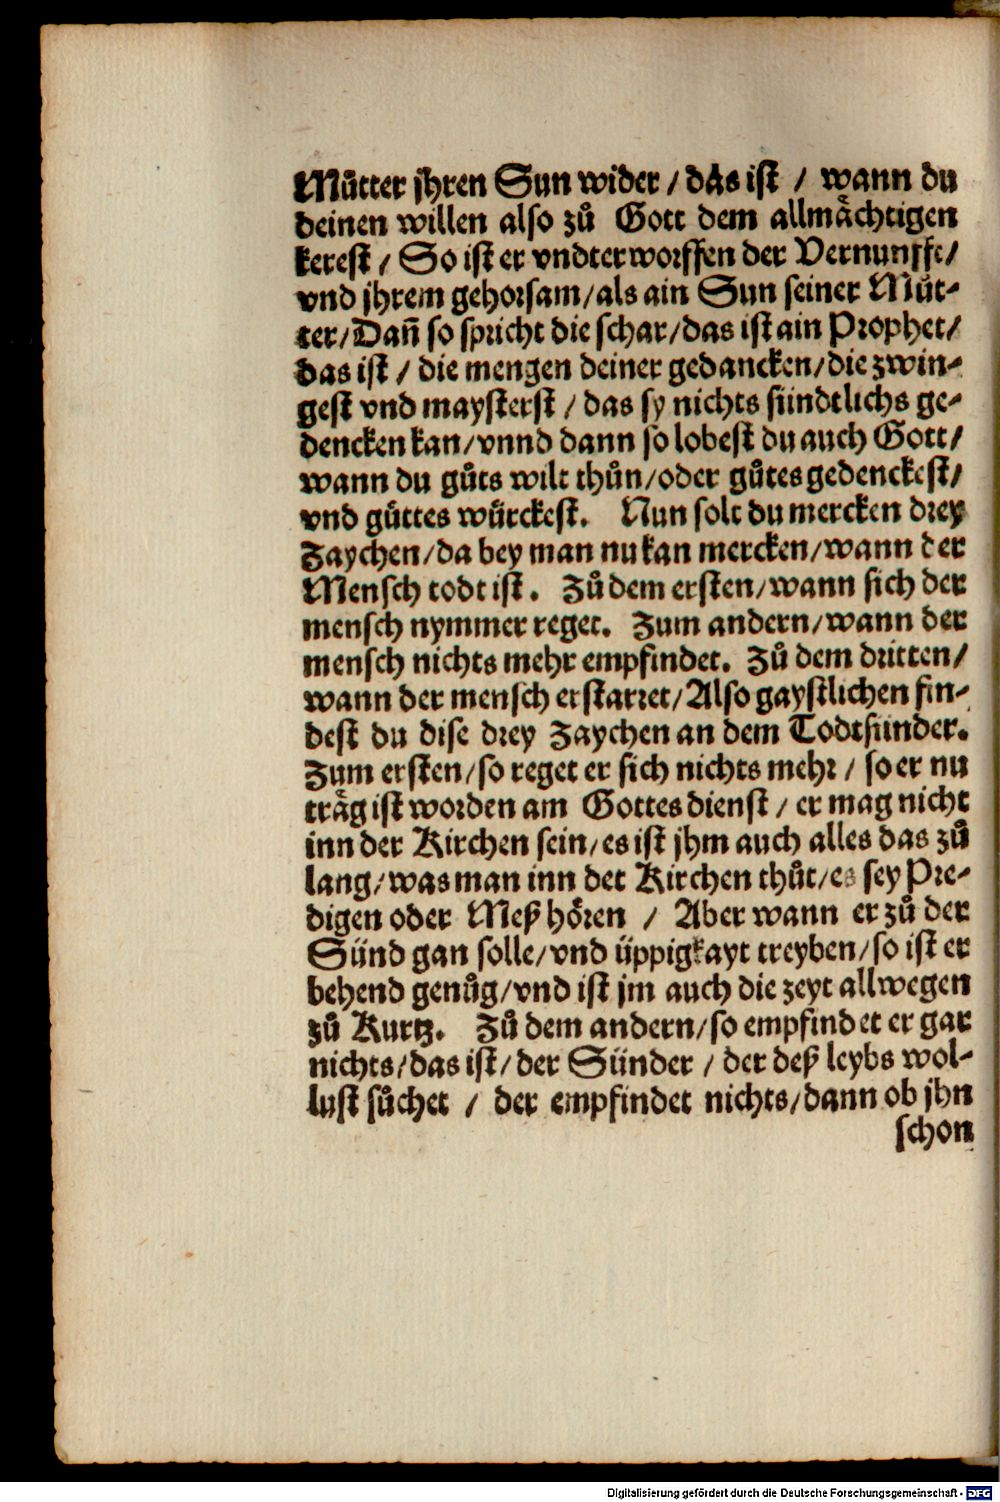 Muͦtter jhren Sun wider / das ist / wann du
deinen willen also zuͦ Gott dem allmaͤchtigen
kerest / So ist er vndterworffen der Vernunfft /
vnd jhrem gehorsam / als ain Sun seiner Muͦt-
ter / Dañ so spricht die schar / das ist ain Prophet /
das ist / die mengen deiner gedancken / die zwin-
gest vnd maysterst / das sy nichts sündtlichs ge-
dencken kan / vnnd dann so lobest du auch Gott /
wann du guͦts wilt thuͦn / oder guͦtes gedenckest /
vnd guͦttes würckest. Nun solt du mercken drey
Zaychen / da bey man nu kan mercken / wann der
Mensch todt ist. Zuͦ dem ersten / wann sich der
mensch nymmer reget. Zum andern / wann der
mensch nichts mehr empfindet. Zuͦ dem dritten /
wann der mensch erstarret / Also gaystlichen fin-
dest du dise drey Zaychen an dem Todtsünder.
Zum ersten / so reget er sich nichts mehr / so er nu
traͤg ist worden am Gottes dienst / er mag nicht
inn der Kirchen sein / es ist jhm auch alles das zuͦ
lang / was man inn det Kirchen thuͦt / es sey Pre-
digen oder Meß hoͤren / Aber wann er zuͦ der
Sünd gan solle / vnd üppigkayt treyben / so ist er
behend genuͦg / vnd ist jm auch die zeyt allwegen
zuͦ Kurtz. Zuͦ dem andern / so empfindet er gar
nichts / das ist / der Sünder / der deß leybs wol-
lust suͦchet / der empfindet nichts / dann ob jhn
schon
Digitalisierung gefördert durch die Deutsche Forschungsgemeinschaft - DFG